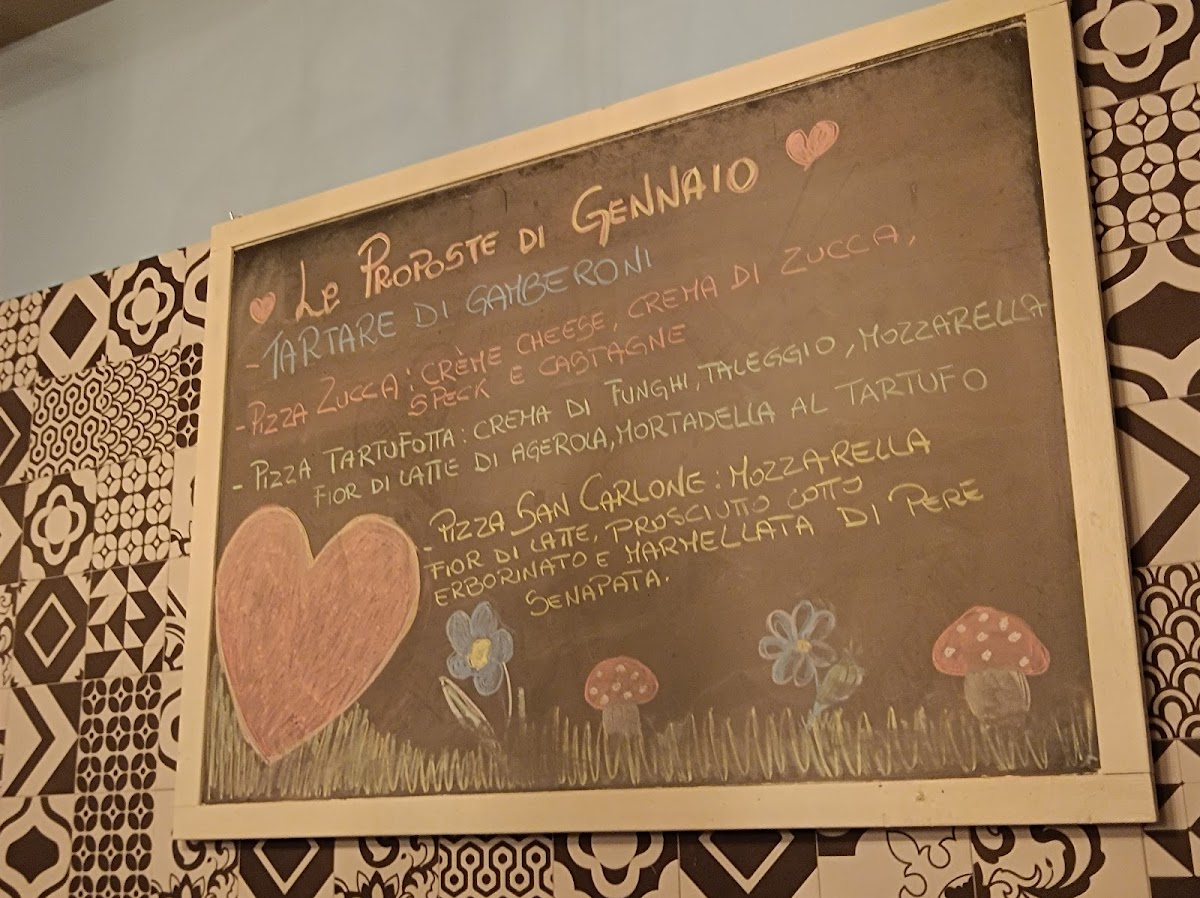 Le Proposte di Gennaio
- TARTARE DI GAMBERONI
- PIZZA ZUCCA: CRÈME CHEESE, CREMA DI ZUCCA,
SPECK E CASTAGNE
- PIZZA TARTUFOTTA: CREMA DI FUNGHI, TALEGGIO, MOZZARELLA
FIOR DI LATTE DI AGEROLA, MORTADELLA AL TARTUFO
- PIZZA SAN CARLONE: MOZZARELLA
FIOR DI LATTE, PROSCIUTTO COTTO
ERBORINATO E MARMELLATA DI PERE
SENAPATA.